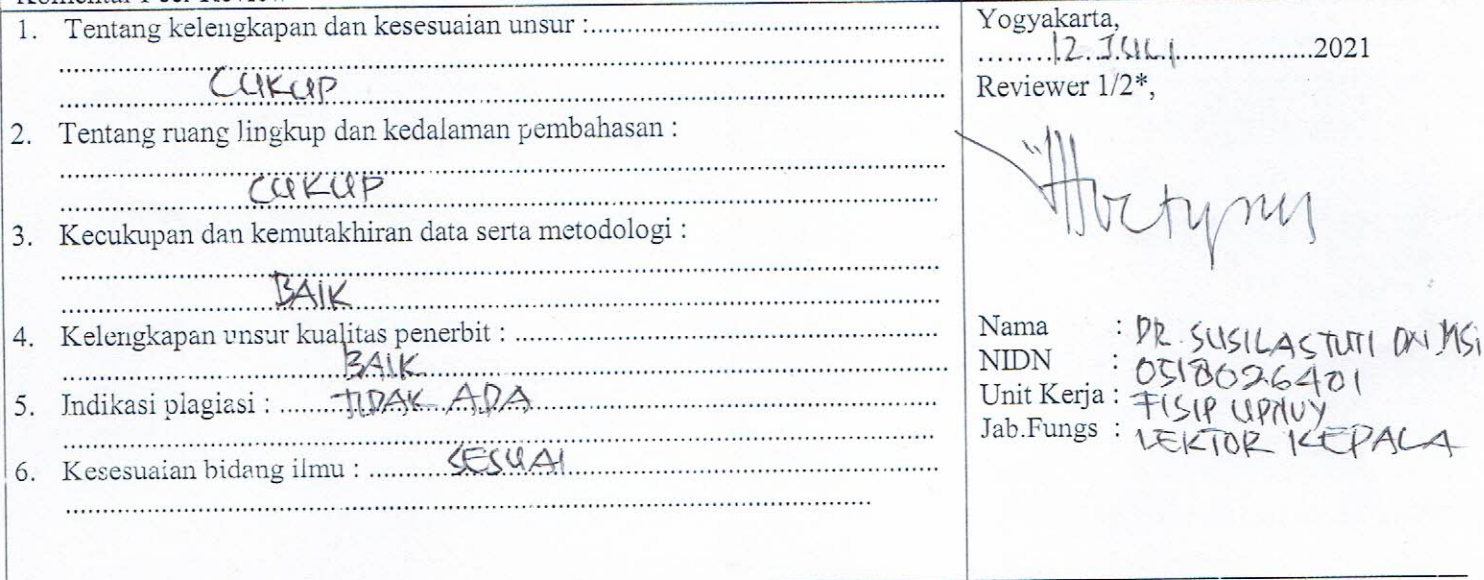 1. Tentang kelengkapan dan kesesuaian unsur :
CUKUP
2. Tentang ruang lingkup dan kedalaman pembahasan :
CUKUP
3. Kecukupan dan kemutakhiran data serta metodologi :
BAIK
4. Kelengkapan unsur kualitas penerbit :
BAIK
5. Indikasi plagiasi : TIDAK ADA
6. Kesesuaian bidang ilmu : SESUAI
Yogyakarta,
12 JULI 2021
Reviewer 1/2*,
Nama : DR. SUSILASTUTI DN, MSi
NIDN : 0518026401
Unit Kerja : FISIP UPNVY
Jab.Fungs : LEKTOR KEPALA